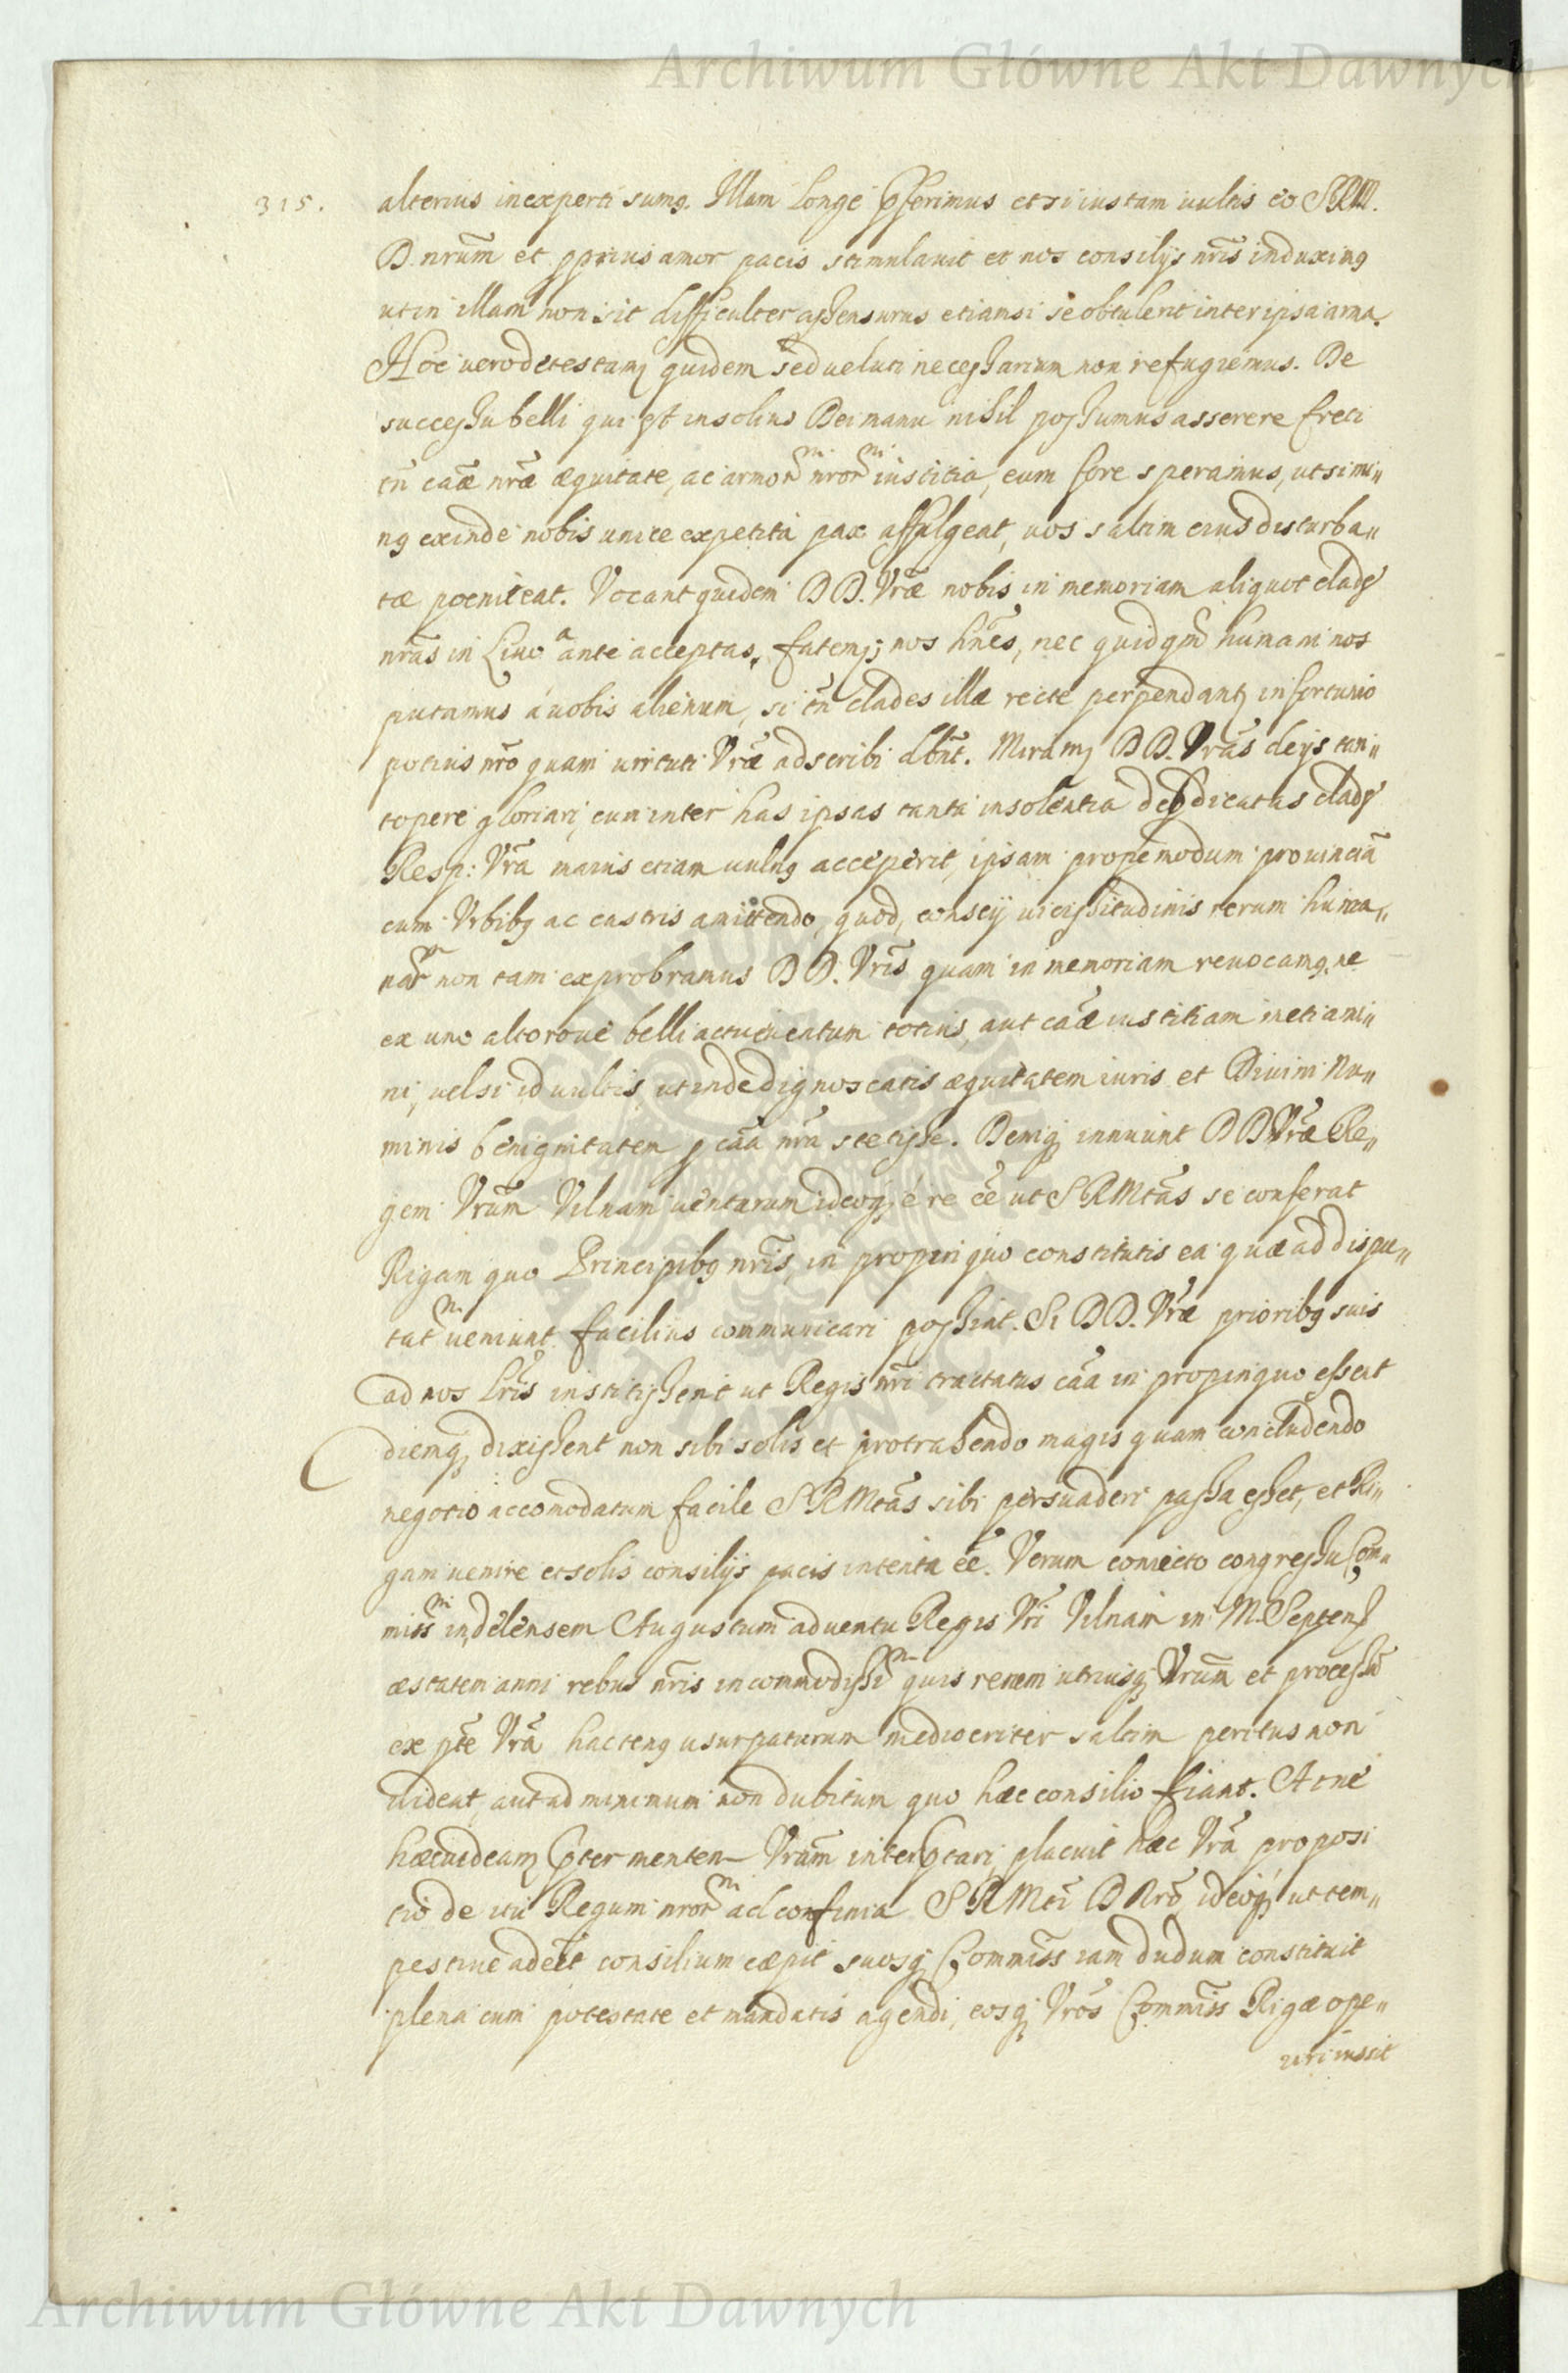 Archiwum Główne Akt Dawnych
315.
alterius inexperti sumq. Illam longe pferimus etsi iustam uultis eo SRM.
D. nrũm et pprius amor pacis stimulauit et nos consilijs nrĩs induximq
ut in illam non sit difficulter assensurus etiamsi se obtulerit inter ipsa arma.
Hoc uero detestamq quidem sed ueluti necessarium non refugiemus. De
successu belli qui est in solius Dei manu nihil possumus asserere freti
tñ caãe nrãe æquitate, ac armorũ nrorũ iustitia, eum fore speramus, ut si mi„
nq exinde nobis unice expetita pax affulgeat, uos saltim eius disturba„
tæ poeniteat. Vocant quidem DD. Vrãe nobis in memoriam aliquot clades
nrãs in Liuoª ante acceptas, fatemq; nos hñes, nec quidqm̃ humani nos
putamus á uobis alienum, si tñ clades illæ recte perpendantq infortunio
potius nrõ quam uirtuti Vrãe adscribi dbñt. Miramq DD. Vrãs de ijs tan„
topere gloriari, cum inter has ipsas tanta insolentia depdicatas clades
Resp: Vrã maius etiam uulnq acceperit, ipsam propemodum prouinciã
cum Vrbibq ac castris amittendo, quod, conscij uicissitudinis rerum huma„
narũ non tam exprobramus DD. Vrĩs quam in memoriam reuocamq, ne
ex uno alteroue belli actu euentum totius, aut caãe iustitiam metiami„
ni, uel si id uultis, ut inde dignoscatis æquitatem iuris et Diuini Nu„
minis benignitatem p caã nrã stetisse. Deniq innuunt DD Vrãe Re„
gem Vrũm Vilnam uenturum ideoq é re eẽ ut SRMtãs se conferat
Rigam quo Principibq nrĩs, in propinquo constitutis ea quæ ad dispu„
tatm̃ ueniunt facilius communicari possint. Si DD. Vrãe prioribq suis
ad nos Lrĩs institissent ut Regis nrĩ tractatus caã in propinquo essent
diemq dixissent non sibi solis et protrahendo magis quam concludendo
negotio accomodatum facile SRMtãs sibi persuaderi passa esset, et Ri„
gam uenire et solis consilijs pacis intenta eẽ. Verum coniecto congressu Com„
miss in Augustum aduentu Regis Vrĩ Vilnam in M. Septemb
æstatem anni rebus nrĩs incommodissi quis rerem utriusq Vrũm et processũ
ex pte Vrã hactenq usurpatorum mediocriter saltim peritus non
uideat, aut ad minimum non dubitum quo hæc consilio fiant. At ne
hæc uideamq pter mentem Vrãm interptari, placuit hæc Vrã proposi
tio de itu Regum nrorm̃ ad confinia SRMtĩ D Nrõ ideoq ut tem„
pestiue adeẽt consilium cæpit suosq Commiss iam dudum constituit
plena cum potestate et mandatis agendi, eosq Vrõs Commiss Rigæ ope„
riri iussit
Archiwum Główne Akt Dawnych